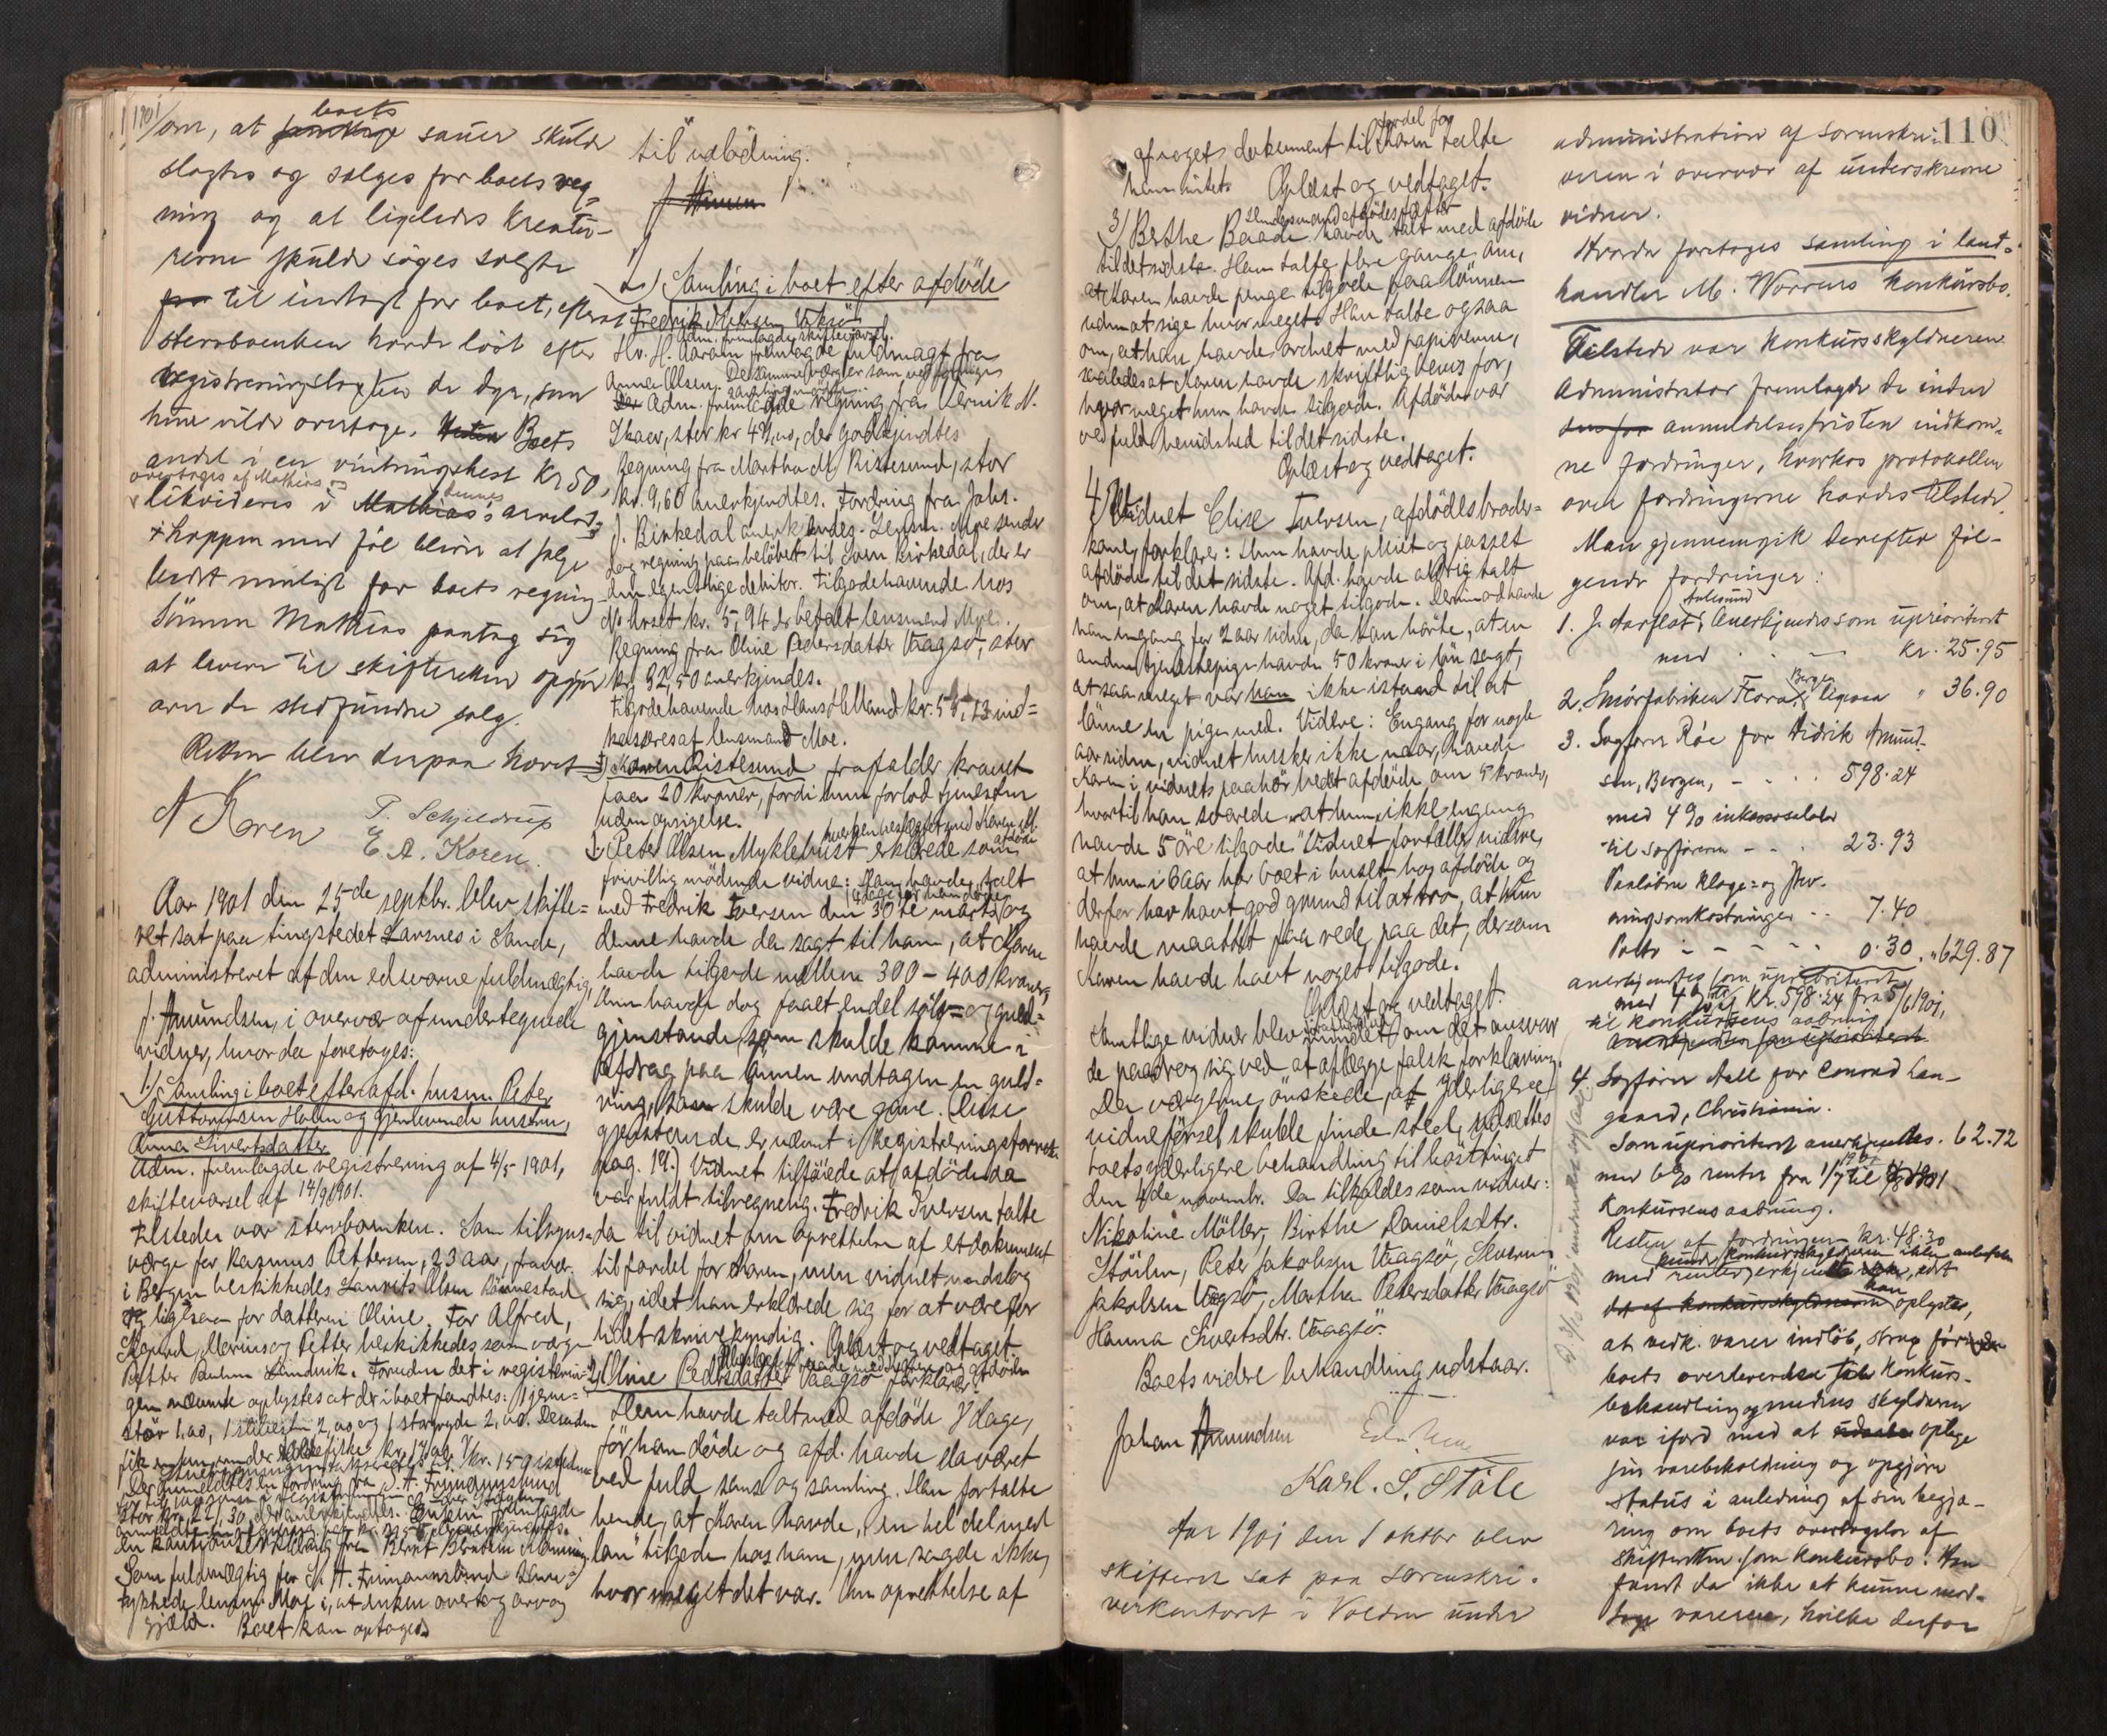 1901/
om, at boets sauer skulde
slagtes og sælges for boets reg-
ning og at ligeledes kreatu-
rerne skulde søges solgte
til indtægt for boet, efterat
stervboenken havde løst efter
registreringstaxten de dyr, som
hun vilde overtage. Boets
andel i en vintringshest kr 50,
overtages af Mathias og
likvideres i dennes arvelod,
hoppen med føl bliver at sælge
bedst muligt for boets regning.
Sønnen Mathias paatog sig
at levere til skifteretten opgjør
over de stedfundne salg.
Retten blev derpaa hævet
N Koren
P. Schjeldrup
E. A. Koren.
Aar 1901 den 25de septbr. blev skifte=
ret sat paa tingstedet Larsnes i Sande,
administreret af den edsvorne fuldmægtig,
J. Amundsen, i overvær af undertegnede
vidner, hvor da foretoges:
1.) Samling i boet efter afd. husm. Peter
Guttormsen Holen og gjenlevende hustru,
Anna Sivertsdatter
Adm. fremlagde registrering af 4/5 1901,
skiftevarsel af 14/9 1901.
Tilstede var stervboenken. Som tilsyns-
værge for Rasmus Pettersen, 23 aar, fravær.
i Bergen beskikkedes Laurits Olsen Rønnestad
og ligesaa for datteren Oline. For Alfred,
Sigurd, Marius og Petter beskikkedes som værge
Petter Paulsen Leinevik. Foruden det i registerin-
gen nævnte oplystes at der i boet fandtes: 1 jern-
stør 1,00, 1 1 stor gryde 2,00. Desuden
Som fuldmægtig for S. A. Frimannslund sam-
tykkede lensm. Moe i, at enken overtog arv og
gjæld. Boet kan optages
til udlodning.
2.) Samling i boet efter afdøde
Fredrik Iversen Vaagsø
Adm. fremlagde skiftevarsel.
Hr. H. Aaram fremlagde fuldmagt fra
Anna Olsen. De samme værger som ved forrige
samling mødte.
Adm. fremlagde regning fra Bernik N.
Skaar, stor kr 49,00, der godkjendtes
Regning fra Martha M. Ristesund, stor
kr. 9,60 anerkjendtes. Fordring fra Johs.
J. Birkedal anerkjendes. Lensm. Moe sender
dog regning paa beløbet til Sven Birkedal, der er
den egentlige debitor. Tilgodehavende hos
N. Arset kr. 5,94 er betalt lensmand Moe.
Regning fra Oline Pedersdatter Vaagsø, stor
kr. 32,50 anerkjendes.
Tilgodehavende hos Hans Helland kr. 54,13 ind=
kasseres af lensmand Moe.
Karen Ristesund frafalder kravet
paa 20 kroner, fordi hun forlod tjenesten
uden opsigelse.
1. Peter Olsen Myklebust hverken beslægtet med Karen el.
afdøde erklærede som
frivillig mødende vidne: Han havde talt
med Fredrik Iversen den 30te marts og
denne havde da sagt til ham, at Karen
havde tilgode mellem 300 - 400 kroner,
Hun havde dog faaet endel sølv= og guld=
gjenstande, som skulde komme i
afdrag paa lønnen undtagen en guld=
ring, som skulde være gave. Disse
gjenstande er nævnt i registreringsforretn.
pag. 19.) Vidnet tilføiede at afdøde da
var fuldt tilregnelig. Fredrik Iversen talte
da til vidnet om oprettelse af et dokument
til fordel for Karen, men vidnet undslog
sig, idet han erklærede sig for at være for
lidet skrivekyndig. Oplæst og vedtaget.
2) Oline Pedersdatter Vaagsø forklarer:
Hun havde talt med afdøde 8 dage,
før han døde og afd. havde da været
ved fuld sans og samling. Han fortalte
hende, at Karen havde „en hel del med
løn" tilgode hos ham, men sagde ikke,
hvor meget det var. Om oprettelse af
noget dokument til fordel for Karen talte
han intet. Oplæst og vedtaget.
3) Berthe Baade havde talt med afdøde
til det sidste. Han talte flere gange om,
at Karen havde penge tilgode paa lønnen
uden at sige hvor meget. Han talte ogsaa
om, at han havde ordnet med papirerne,
saaledes at Karen havde skriftlig bevis for,
hvor meget hun havde tilgode. Afdøde var
ved fuld bevidshed til det sidste.
Oplæst og vedtaget.
4) Vidnet Elise Iversen, afdødes broder=
kone, forklarer: Hun havde pleiet og passet
afdøde til det sidste. Afd. havde aldrig talt
om, at Karen havde noget tilgode. Derimod havde
han engang for 2 aar siden, da han hørte, at en
anden tjenestepige havde 50 kroner i løn sagt,
at saa meget var han ikke istand til at
lønne en pige med. Videre: Engang for nogle
aar siden, vidnet husker ikke naar, havde
Karen i vidnets paahør bedt afdøde om 5 kroner,
hvortil han svarede „at hun ikke engang
havde 5 øre tilgode." Vidnet fortæller videre,
at hun i 6 aar har boet i huset hos afdøde og
derfor har havt god grund til at tro, at hun
havde maattet faa rede paa det, dersom
Karen havde havt noget tilgode.
Oplæst og vedtaget.
Samtlige vidner blev mindet om det ansvar
de paadrog sig ved at aflægge falsk forklaring.
Da værgerne ønskede, at yderligere
vidneførsel skulde finde sted, udsættes
boets yderligere behandling til høsttinget
den 4de novembr. Da tilkaldes som vidner:
Nikoline Møller, Birthe Danielsdtr.
Støilen, Peter Jakobsen Vaagsø, Severin
Jakobsen Vaagsø, Martha Petersdatter Vaagsø
Hanna Sivertsdtr. Vaagsø.
Boets videre behandling udstaar.
Johan Amundsen
Karl. S. Ståle
Aar 1901 den 1 oktbr blev
skifteret sat paa sorenskri-
verkontoret i Volden under
110
administration af sorenskri-
veren i overvær af underskrevne
vidner.
Hvorda foretoges samling i land-
handler M. Worrens konkursbo.
Tilstede var konkursskyldneren
Administrator fremlagde de inden
anmeldelsesfristen indkom-
ne fordringer, hvorhos protokollen
over fordringerne havdes tilstede.
Man gjennemgik derefter føl-
gende fordringer:
1. J. Aarflot, Aalesund Anerkjendes som uprioriteret
med . . — kr. 25.95
2. Smørfabriken Flora, Bergen ligesaa " 36.90
3. Sagfører Røe for Didrik Amund-
sen, Bergen, - . . . 598.24
med 4% inkassosalær
til sagføreren - - . 23.93
Paaløbne klage- og stev-
ningsomkostninger . . 7.40
Porto - - - - . . 0.30 . " 629.87
anerkjendtes som uprioriteret
med 4% rente af kr. 598.24 fra 5/6 1901,
til konkursens aabning
4. Sagfører Aall for Conrad Lan-
gaard, Christiania.
Som uprioriteret anerkjendtes. 62.72
med 6% renter fra 1/7 1901 til
konkursens aabning.
Resten af fordringen kr. 48.30
med renter
oplyster,
at vedk. varer indløb, strax før
boets overleverelse til konkurs-
behandling og medens skyldneren
var ifærd med at optage
sin varebeholdning og opgjøre
status i anledning af sin begjæ-
ring om boets overtagelse af
skifteretten som konkursbo. Han
fandt da ikke at kunne mod-
tage varerne, hvilke derfor